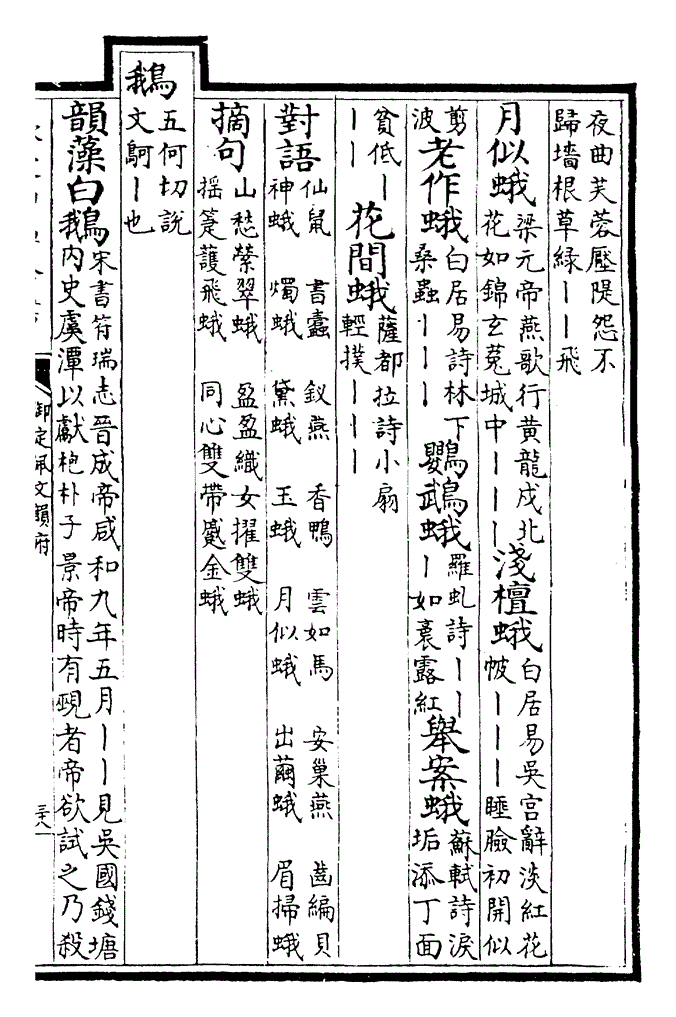 夜曲芙蓉壓隄怨不
歸墻根草綠丨丨飛
月似蛾梁元帝燕歌行黄龍戍北
花如錦玄菟城中丨丨丨淺檀蛾白居易吳宫辭淡紅花
帔丨丨丨睡臉初開似
剪
波老作蛾白居易詩林下
桑蟲丨丨丨鸚鵡蛾羅虬詩丨丨
丨如裛露紅舉案蛾蘇軾詩淚
垢添丁面
貧低丨
丨丨花間蛾薩都拉詩小扇
輕撲丨丨丨
對語仙鼠 書蠹 釵燕 香鴨 雲如馬 安巢燕 齒編貝
神蛾 燭蛾 黛蛾 玉蛾 月似蛾 出繭蛾 眉掃蛾
摘句山愁縈翠蛾 盈盈織女擢雙蛾
摇筵護飛蛾 同心雙帶蹙金蛾
鵝
五何切説
文鴚丨也
韻藻白鵝宋書符瑞志晉成帝咸和九年五月丨丨見吳國錢塘
内史虞潭以獻枹朴子景帝時有覡者帝欲試之乃殺
御定佩文韻府